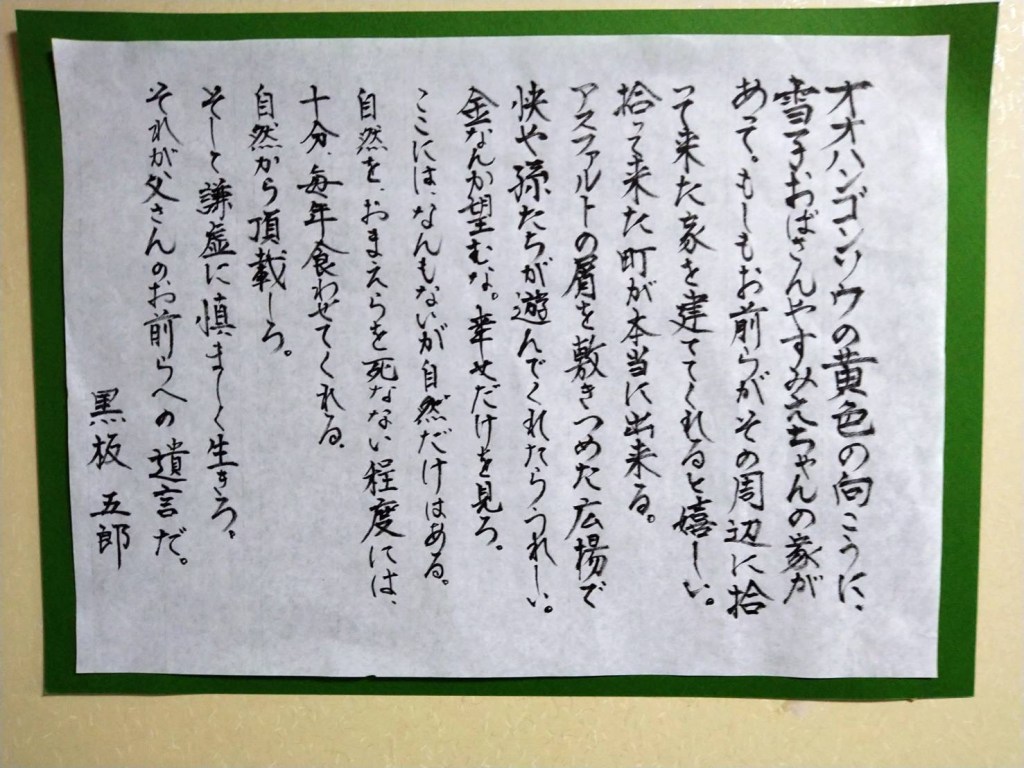 オオハンゴンソウの黄色の向こうに、
雪子おばさんやすみえちゃんの家が
あって。もしもお前らがその周辺に拾
って来た家を建ててくれると嬉しい。
拾って来た町が本当に出来る。
アスファルトの屑を敷きつめた広場で
快や孫たちが遊んでくれたらうれしい。
金なんか望むな。幸せだけを見ろ。
ここには、なんもないが自然だけはある。
自然を、おまえらを死なない程度には、
十分、毎年食わせてくれる。
自然から頂載しろ。
そして謙虚に慎ましく生きろ。
それが父さんのお前らへの遺言だ。
黒板 五郎